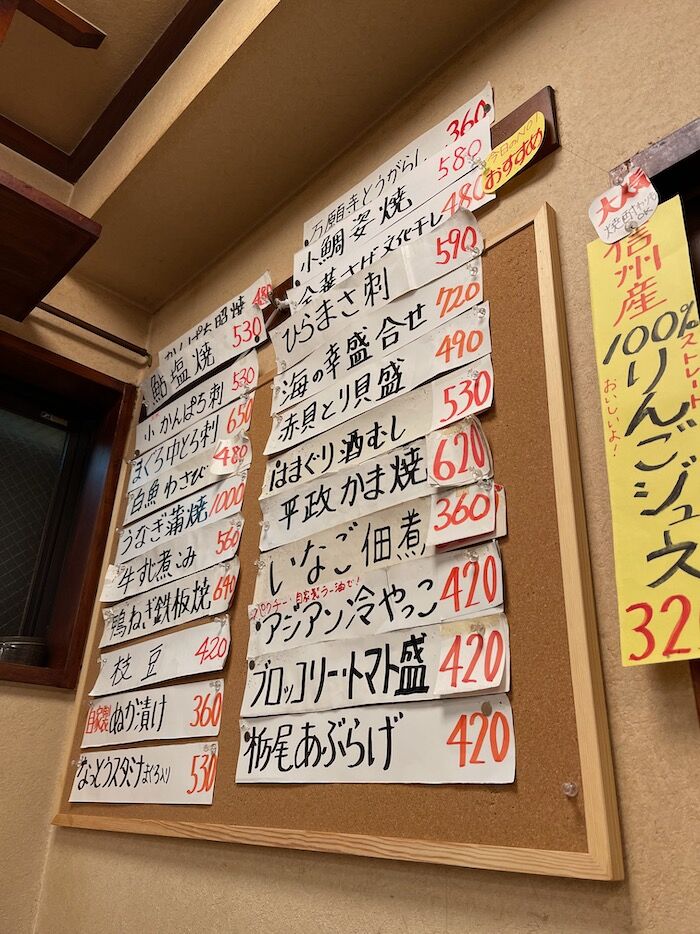 万願寺とうがらし 360
小鯛姿焼 580
文化干し 480
今日のNO1
おすすめ
ひらまさ刺 590
海の幸盛合せ 720
赤貝とり貝盛 490
はまぐり酒むし 530
平政かま焼 620
いなご佃煮 360
パクチー・自家製ラー油で!
アジアン冷やっこ 420
ブロッコリー・トマト盛 420
栃尾あぶらげ 420
かんぱち照焼 480
鮎塩焼 530
小かんぱち刺 530
まぐろ中とろ刺 650
白魚わさび 480
うなぎ蒲焼 1000
牛すじ煮こみ 560
鴨ねぎ鉄板焼 640
枝豆 420
自家製ぬか漬け 360
なっとうスタミナまぐろ入り 530
大人気
焼酎わりもOK
信州産
ストレート
100%りんごジュース
おいしいよ!
32